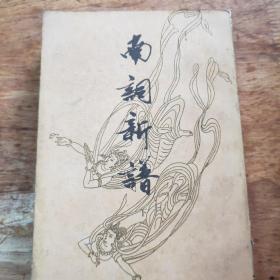 南詞新譜